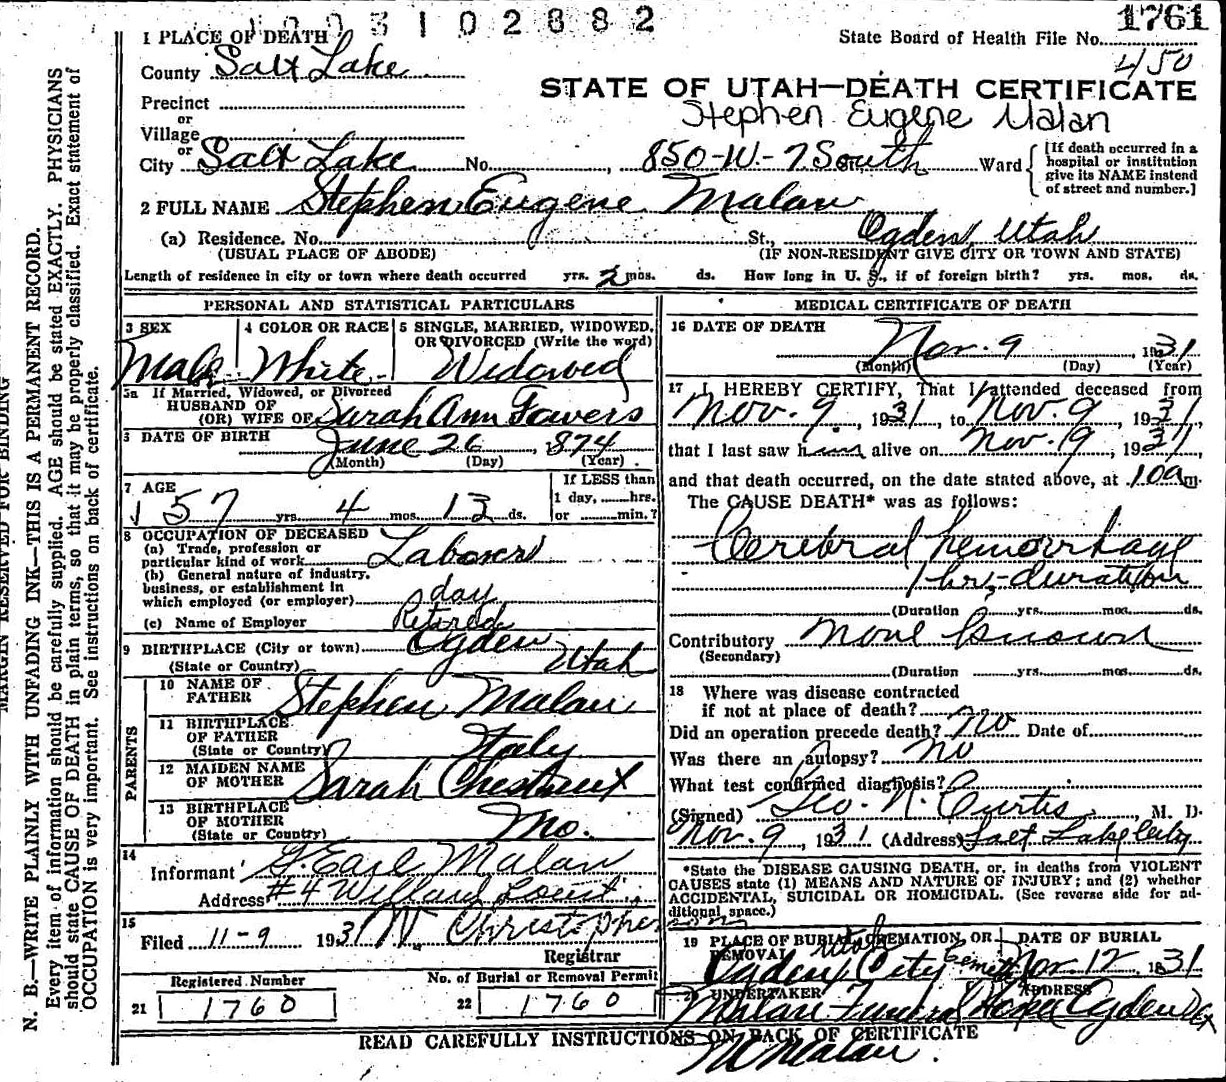 1003102882
1761
State Board of Health File No.
450
1 PLACE OF DEATH
County Salt Lake
STATE OF UTAH—DEATH CERTIFICATE
Stephen Eugene Malan
Precinct
or
Village
or
City Salt Lake No. 850-W-7 South Ward
[If death occurred in a hospital or institution give its NAME instead of street and number.]
2 FULL NAME Stephen Eugene Malan
(a) Residence. No. St., Ogden, Utah
(USUAL PLACE OF ABODE) (IF NON-RESIDENT GIVE CITY OR TOWN AND STATE)
Length of residence in city or town where death occurred yrs. 2 mos. ds. How long in U. S., if of foreign birth? yrs. mos. ds.
PERSONAL AND STATISTICAL PARTICULARS
3 SEX
Male
4 COLOR OR RACE
White
5 SINGLE, MARRIED, WIDOWED, OR DIVORCED (Write the word)
Widowed
5a If Married, Widowed, or Divorced
HUSBAND OF
(OR) WIFE OF Sarah Ann Favers
6 DATE OF BIRTH June 26, 1874
(Month) (Day) (Year)
7 AGE
57 yrs. 4 mos. 13 ds.
If LESS than
1 day, hrs.
or min.?
8 OCCUPATION OF DECEASED
(a) Trade, profession or
particular kind of work Laborer
(b) General nature of industry,
business, or establishment in
which employed (or employer) day
(c) Name of Employer Retired
9 BIRTHPLACE (City or town) Ogden
(State or Country) Utah
PARENTS
10 NAME OF
FATHER Stephen Malan
11 BIRTHPLACE
OF FATHER
(State or Country) Italy
12 MAIDEN NAME
OF MOTHER Sarah Chestnut
13 BIRTHPLACE
OF MOTHER
(State or Country) Mo.
14
Informant G. Earl Malan
Address #4 Willard Court
15
Filed 11-9 1931 W. Christopherson
Registrar
Registered Number No. of Burial or Removal Permit
21 1760 22 1760
MEDICAL CERTIFICATE OF DEATH
16 DATE OF DEATH
Nov. 9, 1931
(Month) (Day) (Year)
17 I HEREBY CERTIFY, That I attended deceased from
Nov. 9, 1931, to Nov. 9, 1931,
that I last saw him alive on Nov. 9, 1931,
and that death occurred, on the date stated above, at 10a m.
The CAUSE DEATH* was as follows:
Cerebral hemorrhage
1 hr-duration
(Duration yrs. mos. ds.
Contributory None known
(Secondary)
(Duration yrs. mos. ds.
18 Where was disease contracted
if not at place of death?
Did an operation precede death? No Date of
Was there an autopsy? No
What test confirmed diagnosis?
(Signed) Geo. N. Curtis, M. D.
Nov. 9, 1931 (Address) Salt Lake City
*State the DISEASE CAUSING DEATH, or, in deaths from VIOLENT
CAUSES state (1) MEANS AND NATURE OF INJURY; and (2) whether
ACCIDENTAL, SUICIDAL OR HOMICIDAL. (See reverse side for ad-
ditional space.)
19 PLACE OF BURIAL, CREMATION, OR REMOVAL
Utah
Ogden City Cemetery
DATE OF BURIAL
Nov. 12, 1931
20 UNDERTAKER ADDRESS
Malan Funeral Home Ogden Ut
READ CAREFULLY INSTRUCTIONS ON BACK OF CERTIFICATE
M Malan.
MARGIN RESERVED FOR BINDING
N. B.—WRITE PLAINLY WITH UNFADING INK—THIS IS A PERMANENT RECORD.
Every item of information should be carefully supplied. AGE should be stated EXACTLY. PHYSICIANS
should state CAUSE OF DEATH in plain terms, so that it may be properly classified. Exact statement of
OCCUPATION is very important. See instructions on back of certificate.